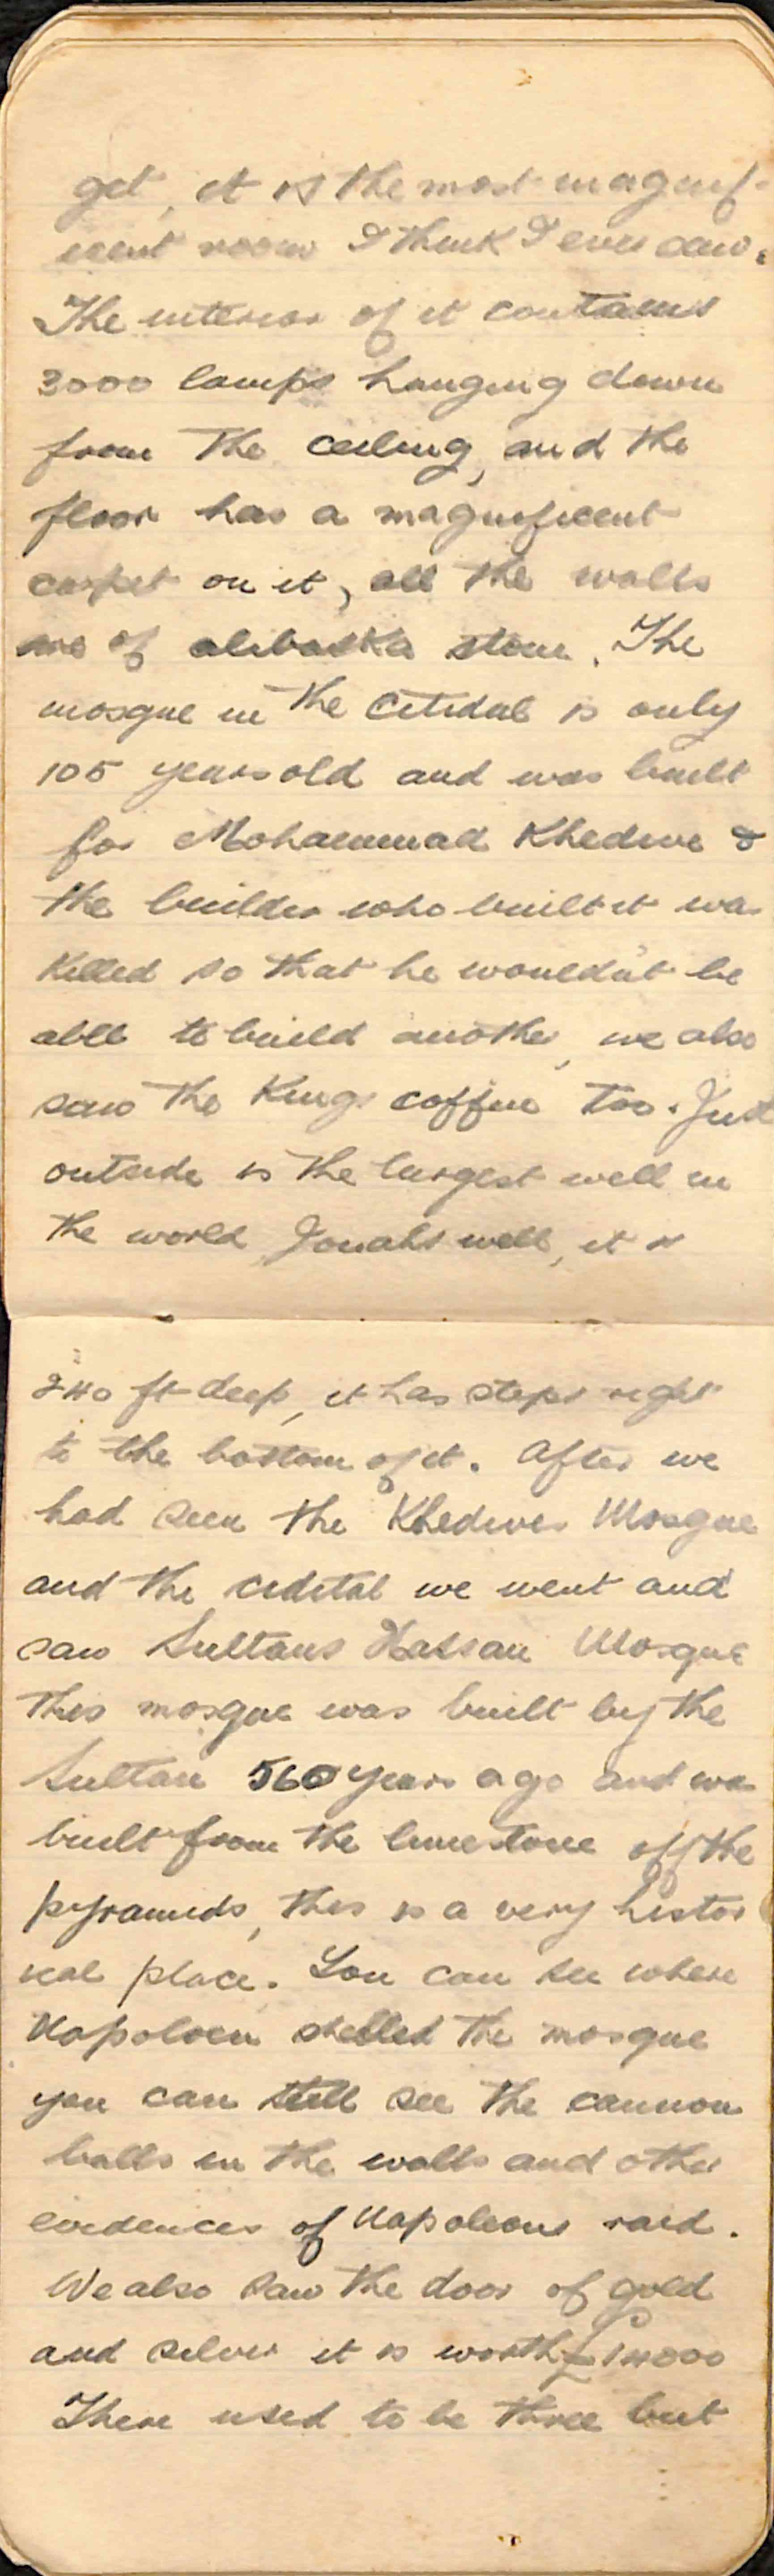 get, it is the most magnif-
icent room I think I ever saw.
The interior of it contains
3000 lamps hanging down
from the ceiling, and the
floor has a magnificent
carpet on it, all the walls
are of alibaska stone. The
mosque in the Citidal is only
105 years old and was built
for Mohammad Khedive &
the builder who built it was
killed so that he wouldn't be
able to build another, we also
saw the Kings coffin too. Just
outside is the largest well in
the world Jonahs well, it is
240 ft deep, it has steps right
to the bottom of it. After we
had seen the Khedives Mosque
and the cidital we went and
saw Sultans Hassan Mosque
This mosque was built by the
Sultan 560 years ago and was
built from the limestone off the
pyramids, this is a very histor
ical place. You can see where
Napoloen shelled the mosque
you can still see the cannon
balls in the walls and other
evidences of Napoleons raid.
We also saw the door of gold
and silver it is worth £14000
There used to be three but